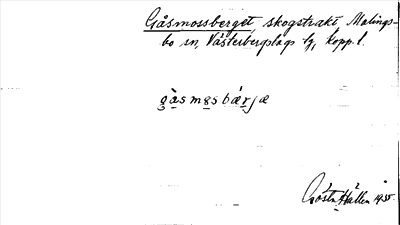 Gåsmossberget skogstrakt, Malings-
bo sn, Västerbergslags tg, Kopp. l.
gå̀smɷsbærjæ
Gösta Hallén 1935.